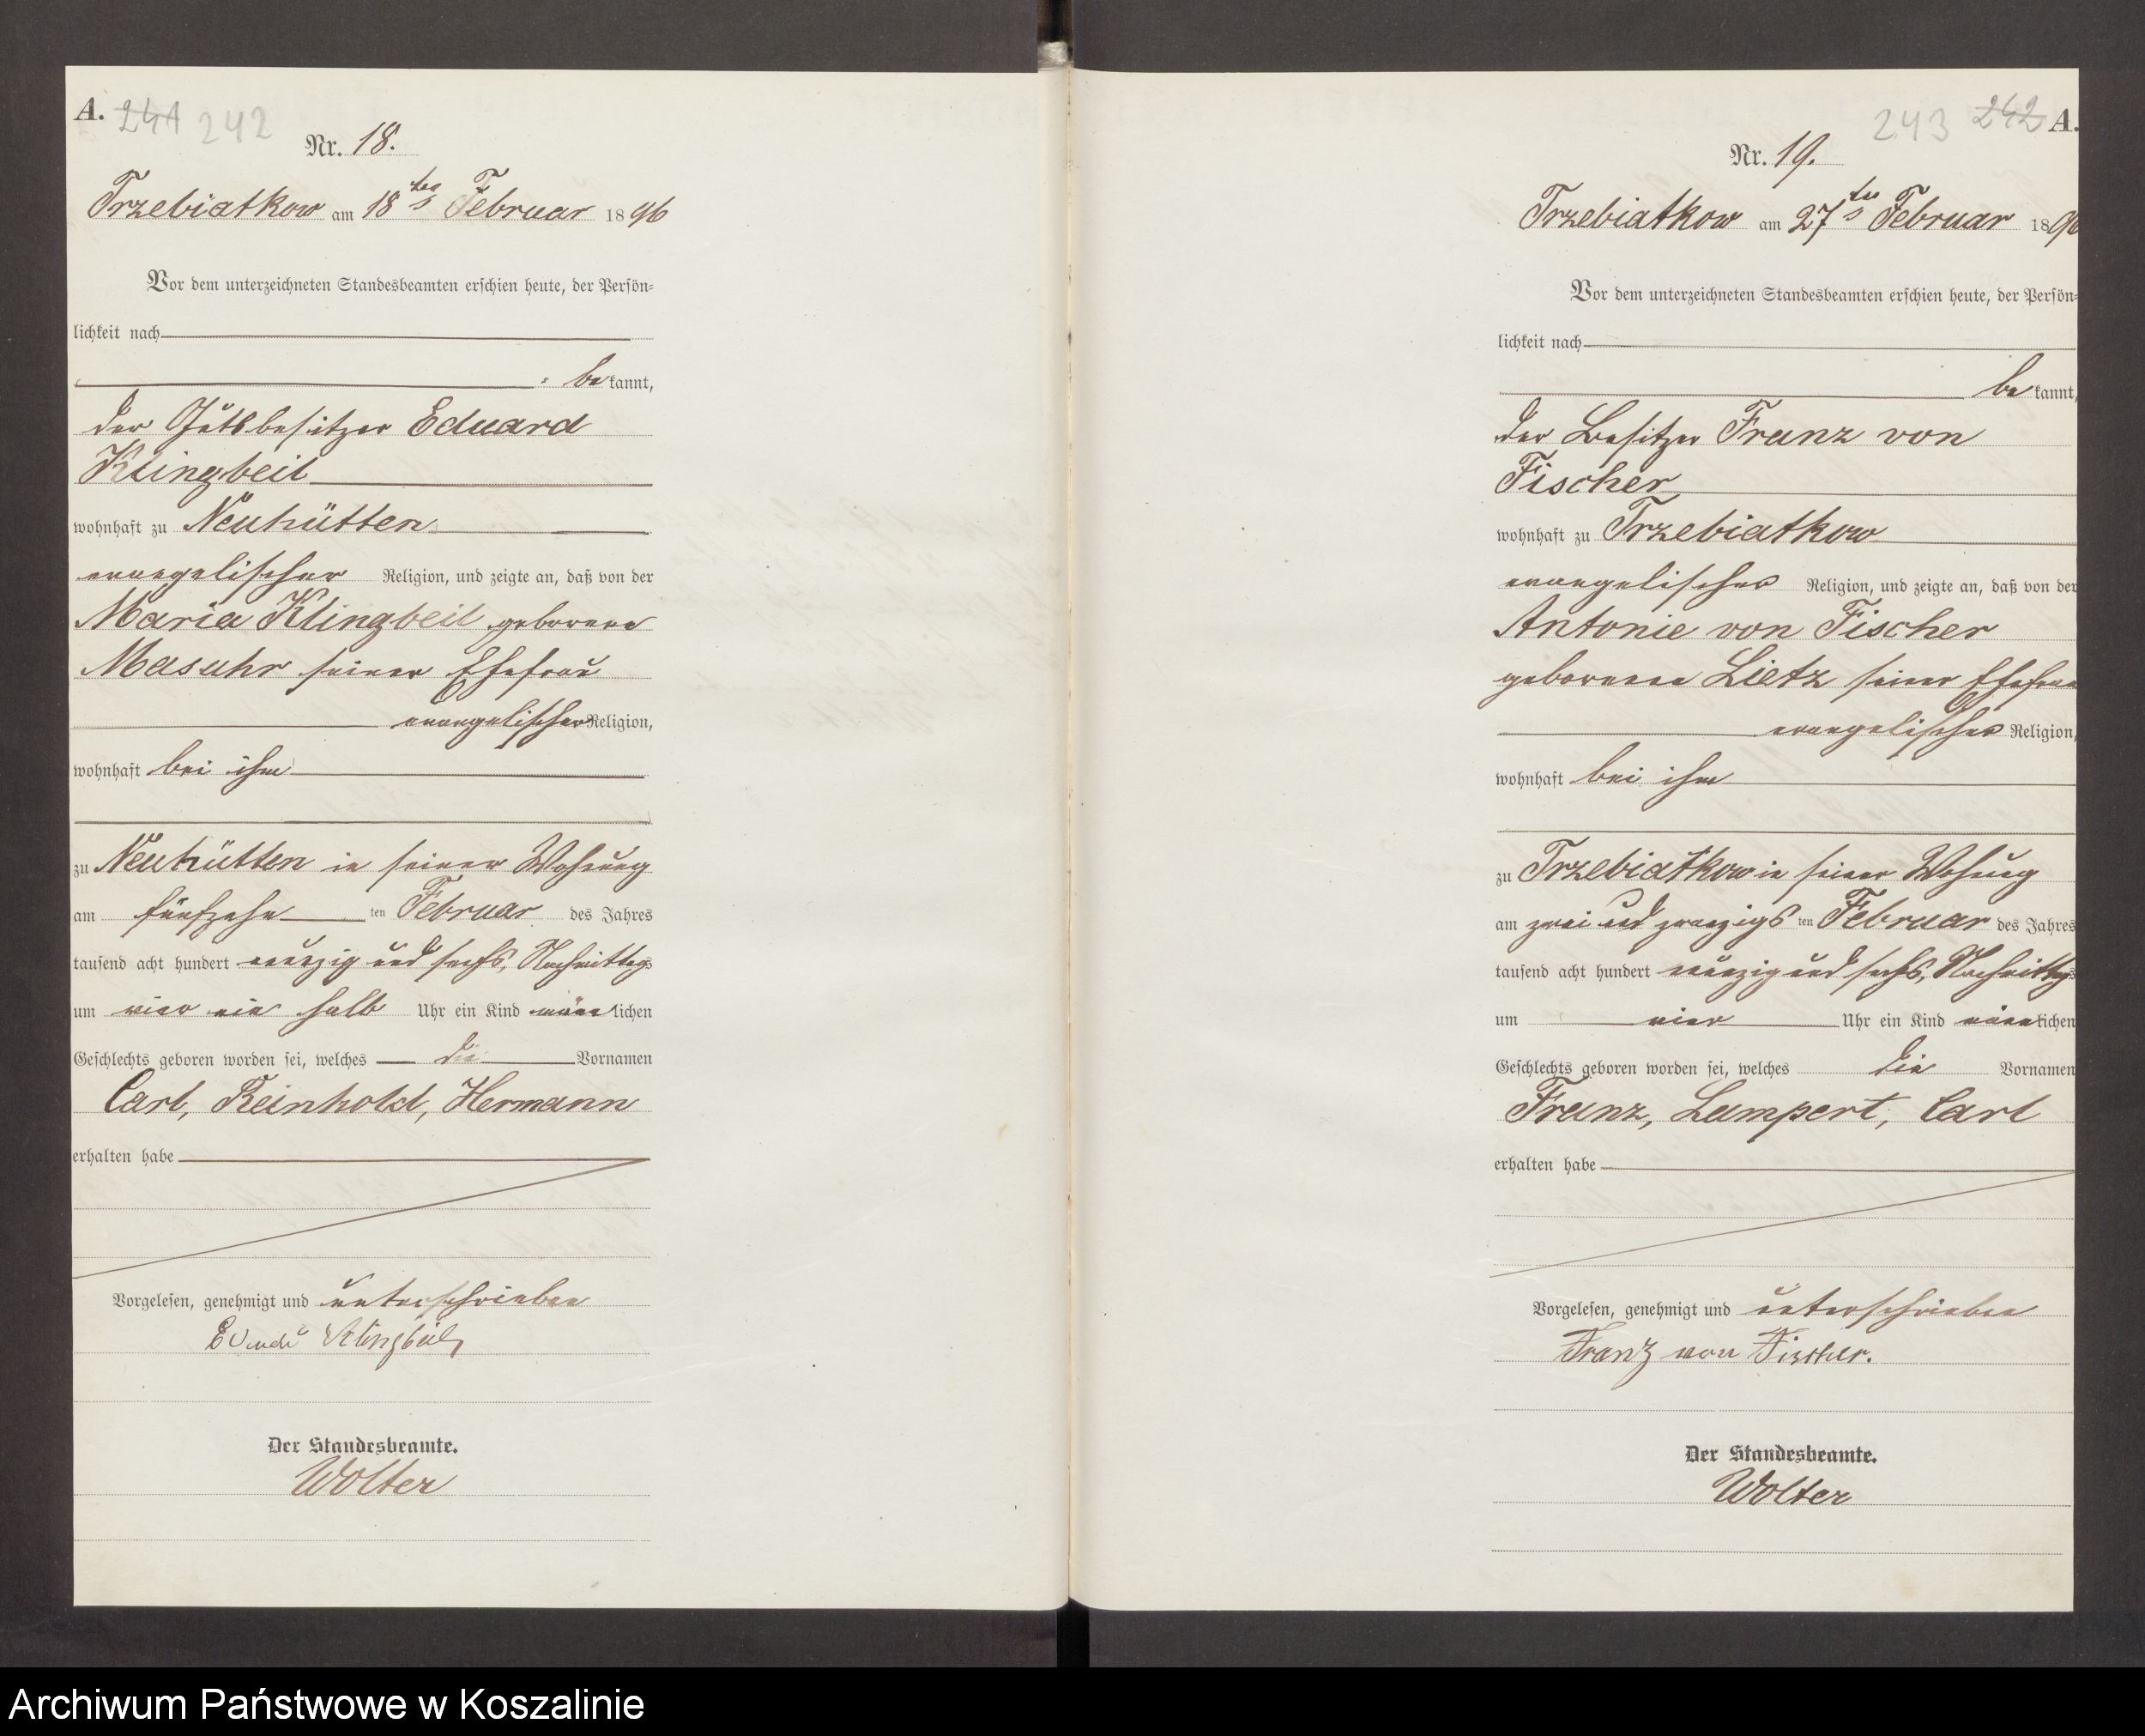 A. 241 242
Nr. 18.
Trzebiatkow am 18ten Februar 1896
Vor dem unterzeichneten Standesbeamten erschien heute, der Persön-
lichkeit nach
bekannt,
der Gutsbesitzer Eduard
Klingbeil
wohnhaft zu Neuhütten
evangelischer Religion, und zeigte an, daß von der
Maria Klingbeil geborene
Masuhr seiner Ehefrau
evangelischer Religion,
wohnhaft bei ihm
zu Neuhütten in seiner Wohnung
am fünfzehn ten Februar des Jahres
tausend acht hundert neunzig und sechs, Nachmittags
um vier ein halb Uhr ein Kind männlichen
Geschlechts geboren worden sei, welches die Vornamen
Carl, Reinhold, Hermann
erhalten habe
Vorgelesen, genehmigt und unterschrieben
Eduard Klingbeil
Der Standesbeamte.
Wolter
243 242 A.
Nr. 19.
Trzebiatkow am 27ten Februar 1896
Vor dem unterzeichneten Standesbeamten erschien heute, der Persön-
lichkeit nach
bekannt,
der Besitzer Franz von
Fischer
wohnhaft zu Trzebiatkow
evangelischer Religion, und zeigte an, daß von der
Antonie von Fischer
geborenen Lietz seiner Ehefrau
evangelischer Religion,
wohnhaft bei ihm
zu Trzebiatkow in seiner Wohnung
am zwei und zwanzigs ten Februar des Jahres
tausend acht hundert neunzig und sechs, Nachmittags
um vier Uhr ein Kind männlichen
Geschlechts geboren worden sei, welches die Vornamen
Franz, Lampert, Carl
erhalten habe
Vorgelesen, genehmigt und unterschrieben
Franz von Fischer.
Der Standesbeamte.
Wolter
Archiwum Państwowe w Koszalinie